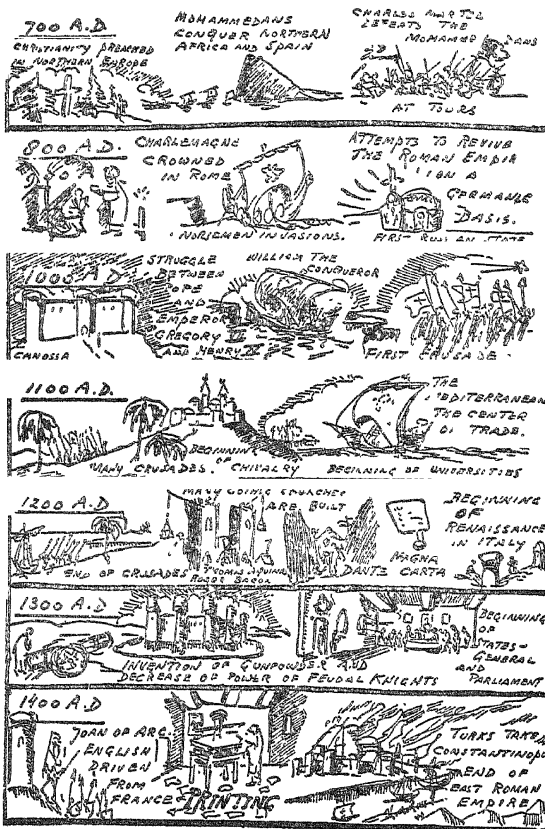 700 A.D
CHRISTIANITY PREACHED
IN NORTHERN EUROPE
MOHAMMEDANS
CONQUER NORTHERN
AFRICA AND SPAIN
CHARLES MARTEL
DEFEATS THE
MOHAMMEDANS
AT TOURS
800 A.D.
CHARLEMAGNE
CROWNED
IN ROME
NORSEMEN INVASIONS.
ATTEMPTS TO REVIVE
THE ROMAN EMPIR
ON A
GERMANIC
BASIS.
FIRST RUSSIAN STATE
1000 A.D
CANOSSA
STRUGGLE
BETWEEN
POPE
AND
EMPEROR
GREGORY VII
AND HENRY IV
WILLIAM THE
CONQUEROR
FIRST CRUSADE.
1100 A.D.
MANY CRUSADES.
BEGINNING
OF
CHIVALRY
THE
MEDITERRANEAN
THE CENTER
OF TRADE.
BEGINNING OF UNIVERSITIES
1200 A.D
END OF CRUSADES
MANY GOTHIC CHURCHES
ARE BUILT
THOMAS AQUINAS
ROGER BACON
DANTE
MAGNA
CARTA
BEGINNING
OF
RENAISSANCE
IN ITALY
1300 A.D
INVENTION OF GUNPOWDER AND
DECREASE OF POWER OF FEUDAL KNIGHTS
BEGINNING
OF
STATES-
GENERAL
AND
PARLIAMENT
1400 A.D
JOAN OF ARC.
ENGLISH
DRIVEN
FROM
FRANCE
PRINTING
TURKS TAKE
CONSTANTINOPLE
END OF
EAST ROMAN
EMPIRE